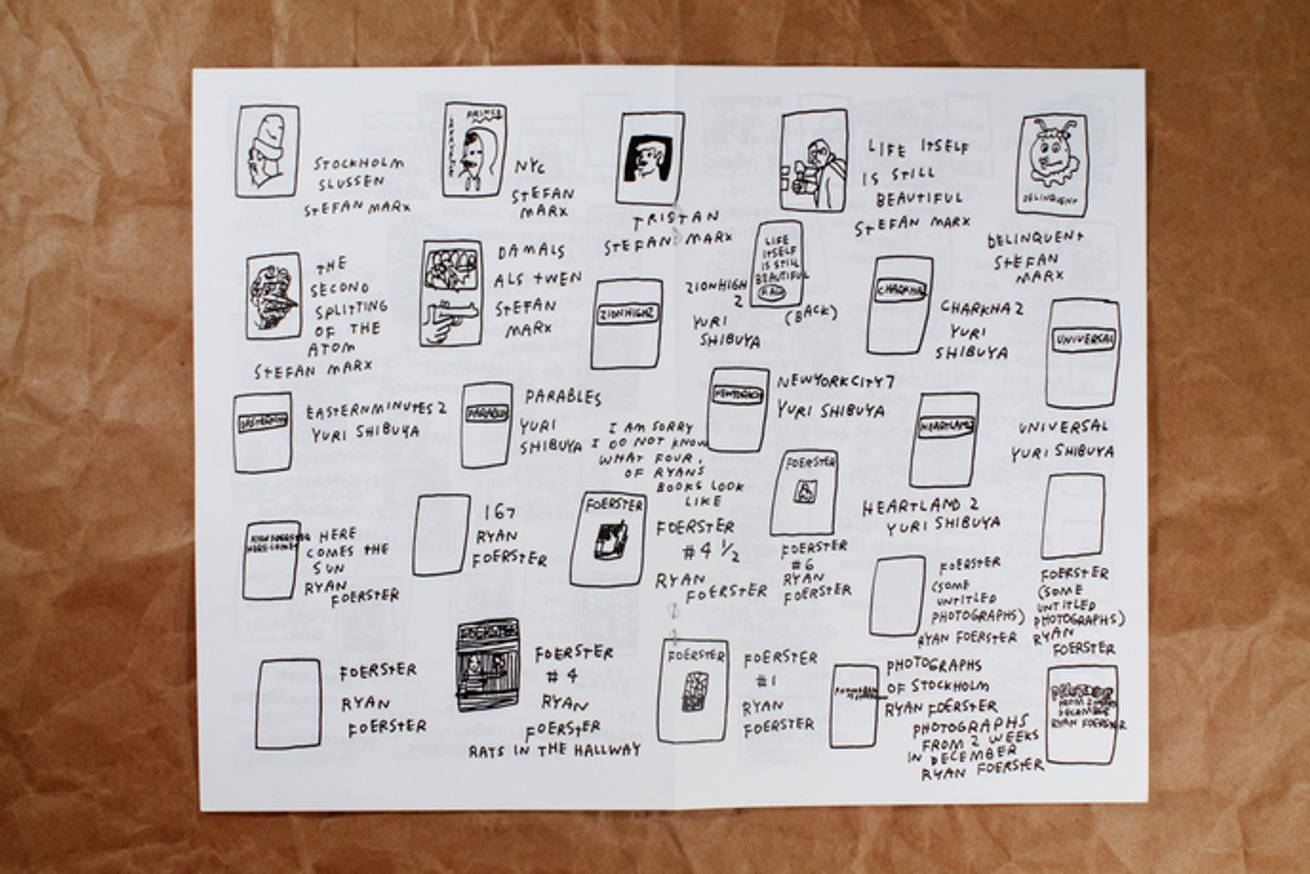 STOCKHOLM
SLUSSEN
STEFAN MARX
PRINCE
NYC
STEFAN
MARX
TRISTAN
STEFAN MARX
LIFE ITSELF
IS STILL
BEAUTIFUL
STEFAN MARX
DELINQUENT
DELINQUENT
STEFAN
MARX
THE
SECOND
SPLITTING
OF THE
ATOM
STEFAN MARX
DAMALS
ALS TWEN
STEFAN
MARX
ZIONHIGH2
ZIONHIGH
2
YURI
SHIBUYA
LIFE
ITSELF
IS STILL
BEAUTIFUL
(BACK)
CHARKHA2
CHARKHA 2
YURI
SHIBUYA
UNIVERSAL
UNIVERSAL
YURI SHIBUYA
EASTERNMINUTES 2
YURI SHIBUYA
PARABLES
PARABLES
YURI
SHIBUYA
I AM SORRY
I DO NOT KNOW
WHAT FOUR,
OF RYANS
BOOKS LOOK
LIKE
NEWYORKCITY7
YURI SHIBUYA
HEARTLAND2
HEARTLAND 2
YURI SHIBUYA
RYAN FOERSTER
HERE COMES
HERE
COMES THE
SUN
RYAN
FOERSTER
167
RYAN
FOERSTER
FOERSTER
FOERSTER
#4 ½
RYAN
FOERSTER
FOERSTER
FOERSTER
#6
RYAN
FOERSTER
FOERSTER
(SOME
UNTITLED
PHOTOGRAPHS)
RYAN FOERSTER
FOERSTER
(SOME
UNTITLED
PHOTOGRAPHS)
RYAN
FOERSTER
FOERSTER
RYAN
FOERSTER
FOERSTER
FOERSTER
#4
RYAN
FOERSTER
RATS IN THE HALLWAY
FOERSTER
FOERSTER
#1
RYAN
FOERSTER
PHOTOGRAPHS
OF STOCKHOLM
RYAN FOERSTER
PHOTOGRAPHS
FROM 2 WEEKS
IN DECEMBER
RYAN FOERSTER
FROM 2
DECEMBER
RYAN FOERSTER